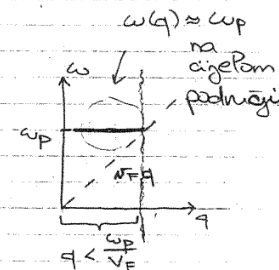 ω(q) ≈ ωp
na
cijelom
području
ω
ωp
v_F q
q
q < ωp/v_F